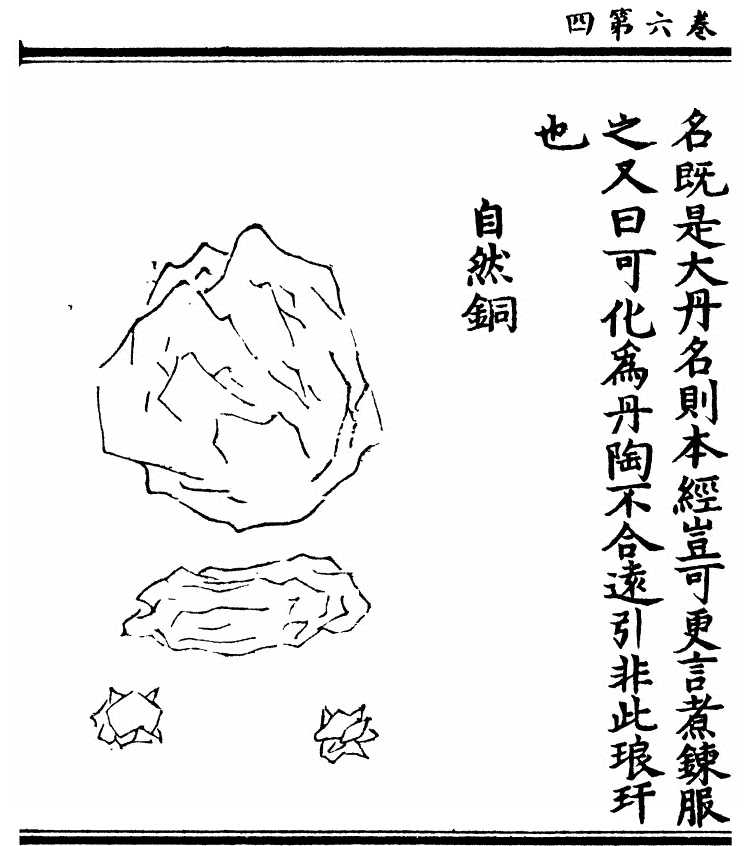 卷六第四
名既是大丹名則本經豈可更言煮鍊服
之又曰可化爲丹陶不合遠引非此琅玕
也
自然銅